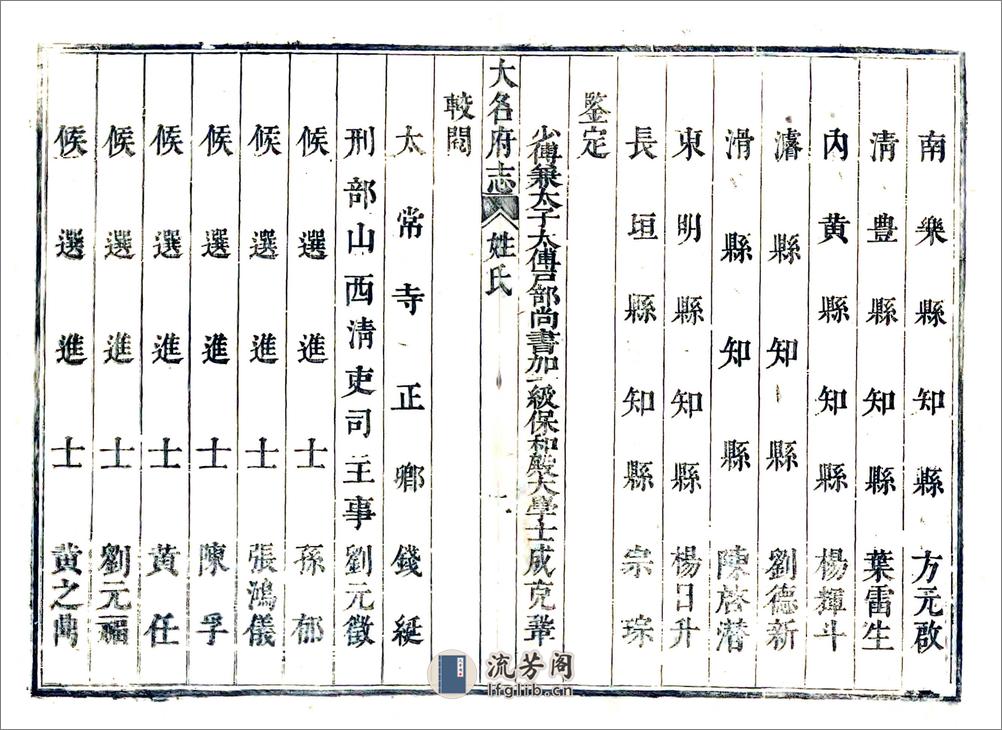 南樂縣知縣方元啟
清豐縣知縣葉雷生
內黃縣知縣楊輝斗
濬縣知縣劉德新
滑縣知縣陳啓潜
東明縣知縣楊日升
長垣縣知縣宗琮
鑒定
少傅兼太子太傅戶部尚書加一級保和殿大學士成克鞏
大名府志 姓氏 二
較閱
太常寺正卿錢綎
刑部山西清吏司主事劉元徵
候選進士孫郁
候選進士張鴻儀
候選進士陳孚
候選進士黃任
候選進士劉元福
候選進士黄之
流芳阁
lfglib.cn